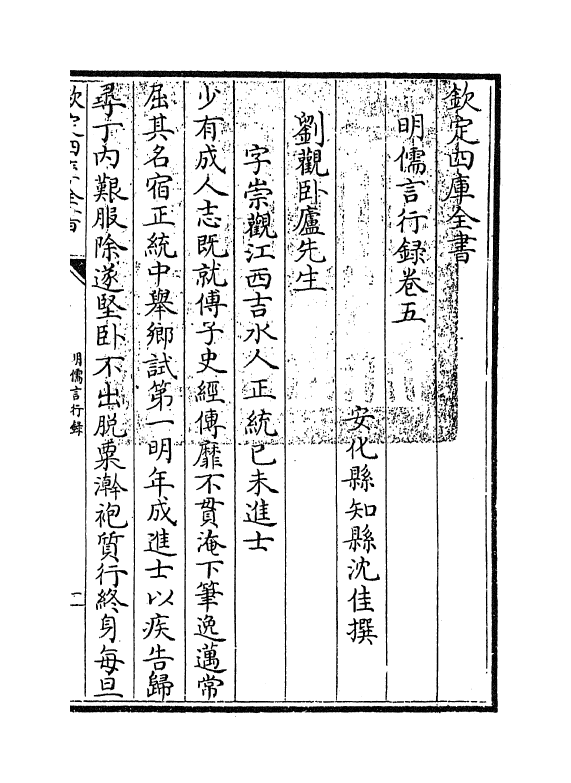 欽定四庫全書
明儒言行録卷五
安化縣知縣沈佳撰
劉觀卧廬先生
字崇觀江西吉水人正統己未進士
少有成人志既就傅子史經傳靡不貫淹下筆逸邁常
屈其名宿正統中舉鄉試第一明年成進士以疾告歸
尋丁内艱服除遂堅卧不出脱粟澣袍質行終身每旦
欽定四庫全書
明儒言行録